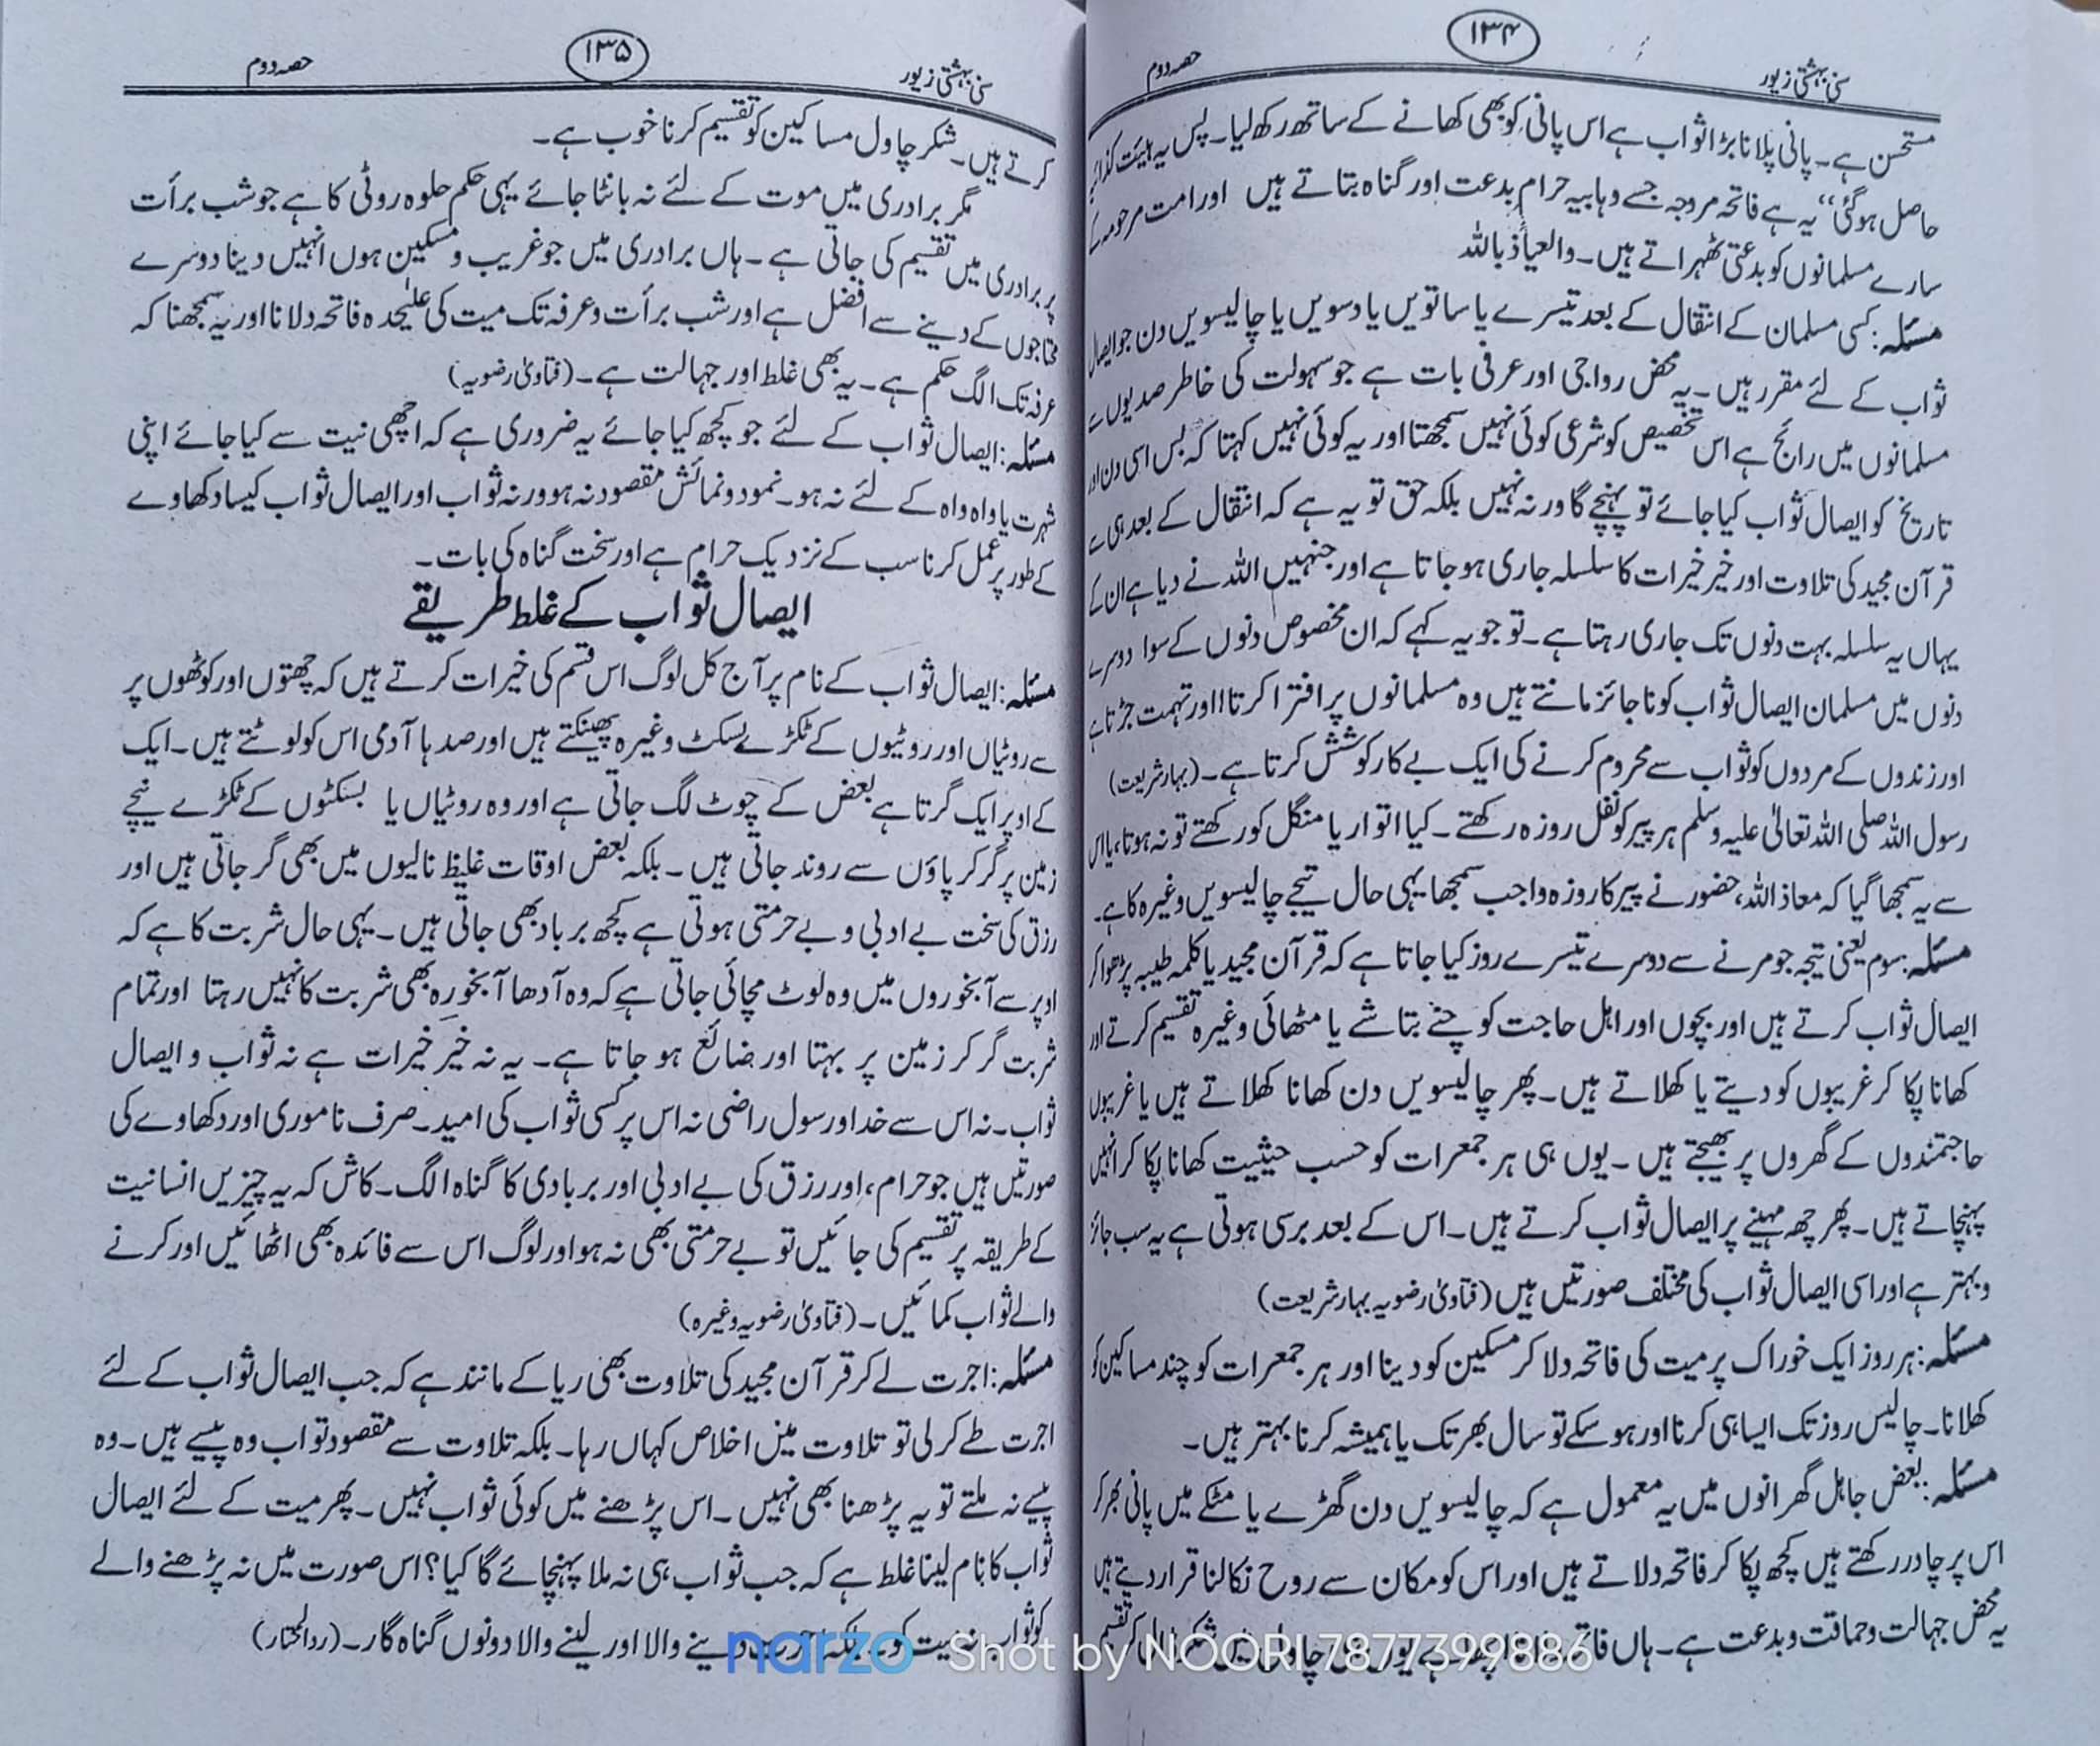 سنی بہشتی زیور
۱۳۴
حصہ دوم
مستحسن ہے۔ پانی پلانا بڑا ثواب ہے اس پانی کو بھی کھانے کے ساتھ رکھ لیا۔ پس یہ ہیئت کذائیہ
حاصل ہو گئی‘‘ یہ ہے فاتحہ مروجہ جسے وہابیہ حرام بدعت اور گناہ بتاتے ہیں اور امت مرحومہ کے
سارے مسلمانوں کو بدعتی ٹھہراتے ہیں۔ والعیاذ باللہ
مسئلہ: کسی مسلمان کے انتقال کے بعد تیسرے یا ساتویں یا دسویں یا چالیسویں دن جو ایصال
ثواب کے لئے مقرر ہیں۔ یہ محض رواجی اور عرفی بات ہے جو سہولت کی خاطر صدیوں سے
مسلمانوں میں رائج ہے اس تخصیص کو شرعی کوئی نہیں سمجھتا اور یہ کوئی نہیں کہتا کہ بس اسی دن اور
تاریخ کو ایصال ثواب کیا جائے تو پہنچے گا ورنہ نہیں بلکہ حق تو یہ ہے کہ انتقال کے بعد ہی سے
قرآن مجید کی تلاوت اور خیر خیرات کا سلسلہ جاری ہو جاتا ہے اور جنہیں اللہ نے دیا ہے ان کے
یہاں یہ سلسلہ بہت دنوں تک جاری رہتا ہے۔ تو جو یہ کہے کہ ان مخصوص دنوں کے سوا دوسرے
دنوں میں مسلمان ایصال ثواب کو ناجائز مانتے ہیں وہ مسلمانوں پر افترا کرتا اور تہمت جڑتا ہے
اور زندوں کے مردوں کو ثواب سے محروم کرنے کی ایک بے کار کوشش کرتا ہے۔ (بہار شریعت)
رسول اللہ صلی اللہ تعالیٰ علیہ وسلم ہر پیر کو نفل روزہ رکھتے۔ کیا اتوار یا منگل کو رکھتے تو نہ ہوتا، یا اس
سے یہ سمجھا گیا کہ معاذ اللہ، حضور نے پیر کا روزہ واجب سمجھا یہی حال تیجے چالیسویں وغیرہ کا ہے۔
مسئلہ: سوم یعنی تیجہ جو مرنے سے دوسرے تیسرے روز کیا جاتا ہے کہ قرآن مجید یا کلمہ طیبہ پڑھوا کر
ایصال ثواب کرتے ہیں اور بچوں اور اہل حاجت کو چنے بتاشے یا مٹھائی وغیرہ تقسیم کرتے اور
کھانا پکا کر غریبوں کو دیتے یا کھلاتے ہیں۔ پھر چالیسویں دن کھانا کھلاتے ہیں یا غریبوں
حاجتمندوں کے گھروں پر بھیجتے ہیں۔ یوں ہی ہر جمعرات کو حسب حیثیت کھانا پکا کر انہیں
پہنچاتے ہیں۔ پھر چھ مہینے پر ایصال ثواب کرتے ہیں۔ اس کے بعد برسی ہوتی ہے یہ سب جائز
و بہتر ہے اور اسی ایصال ثواب کی مختلف صورتیں ہیں (فتاویٰ رضویہ بہار شریعت)
مسئلہ: ہر روز ایک خوراک پر میت کی فاتحہ دلا کر مسکین کو دینا اور ہر جمعرات کو چند مساکین کو
کھلانا۔ چالیس روز تک ایسا ہی کرنا اور ہو سکے تو سال بھر تک یا ہمیشہ کرنا بہتر ہیں۔
مسئلہ: بعض جاہل گھرانوں میں یہ معمول ہے کہ چالیسویں دن گھڑے یا مٹکے میں پانی بھر کر
اس پر چادر رکھتے ہیں کچھ پکا کر فاتحہ دلاتے ہیں اور اس کو مکان سے روح نکالنا قرار دیتے ہیں
یہ محض جہالت و حماقت و بدعت ہے۔ ہاں تقسیم
سنی بہشتی زیور
۱۳۵
حصہ دوم
کرتے ہیں۔ شکر چاول مساکین کو تقسیم کرنا خوب ہے۔
مگر برادری میں موت کے لئے نہ بانٹا جائے یہی حکم حلوہ روٹی کا ہے جو شب برأت
پر برادری میں تقسیم کی جاتی ہے۔ ہاں برادری میں جو غریب و مسکین ہوں انہیں دینا دوسرے
محتاجوں کے دینے سے افضل ہے اور شب برأت و عرفہ تک میت کی علیٰحدہ فاتحہ دلانا اور یہ سمجھنا کہ
عرفہ تک الگ حکم ہے۔ یہ بھی غلط اور جہالت ہے۔ (فتاویٰ رضویہ)
مسئلہ: ایصال ثواب کے لئے جو کچھ کیا جائے یہ ضروری ہے کہ اچھی نیت سے کیا جائے اپنی
شہرت یا واہ واہ کے لئے نہ ہو۔ نمود و نمائش مقصود نہ ہو ورنہ ثواب اور ایصال ثواب کیسا دکھاوے
کے طور پر عمل کرنا سب کے نزدیک حرام ہے اور سخت گناہ کی بات۔
ایصال ثواب کے غلط طریقے
مسئلہ: ایصال ثواب کے نام پر آج کل لوگ اس قسم کی خیرات کرتے ہیں کہ چھتوں اور کوٹھوں پر
سے روٹیاں اور روٹیوں کے ٹکڑے بسکٹ وغیرہ پھینکتے ہیں اور صدہا آدمی اس کو لوٹتے ہیں۔ ایک
کے اوپر ایک گرتا ہے بعض کے چوٹ لگ جاتی ہے اور وہ روٹیاں یا بسکٹوں کے ٹکڑے نیچے
زمین پر گر کر پاؤں سے روند جاتی ہیں۔ بلکہ بعض اوقات غلیظ نالیوں میں بھی گر جاتی ہیں اور
رزق کی سخت بے ادبی و بے حرمتی ہوتی ہے کچھ برباد بھی جاتی ہیں۔ یہی حال شربت کا ہے کہ
اوپر سے آبخوروں میں وہ لوٹ مچائی جاتی ہے کہ وہ آدھا آبخورہ بھی شربت کا نہیں رہتا اور تمام
شربت گر کر زمین پر بہتا اور ضائع ہو جاتا ہے۔ یہ نہ خیر خیرات ہے نہ ثواب و ایصال
ثواب۔ نہ اس سے خدا اور سول راضی نہ اس پر کسی ثواب کی امید۔ صرف ناموری اور دکھاوے کی
صورتیں ہیں جو حرام، اور رزق کی بے ادبی اور بربادی کا گناہ الگ۔ کاش کہ یہ چیزیں انسانیت
کے طریقہ پر تقسیم کی جائیں تو بے حرمتی بھی نہ ہو اور لوگ اس سے فائدہ بھی اٹھائیں اور کرنے
والے ثواب کمائیں۔ (فتاویٰ رضویہ وغیرہ)
مسئلہ: اجرت لے کر قرآن مجید کی تلاوت بھی ریا کے مانند ہے کہ جب ایصال ثواب کے لئے
اجرت طے کر لی تو تلاوت میں اخلاص کہاں رہا۔ بلکہ تلاوت سے مقصود تو اب وہ پیسے ہیں۔ وہ
پیسے نہ ملتے تو یہ پڑھنا بھی نہیں۔ اس پڑھنے میں کوئی ثواب نہیں۔ پھر میت کے لئے ایصال
ثواب کا نام لینا غلط ہے کہ جب ثواب ہی نہ ملا پہنچائے گا کیا؟ اس صورت میں نہ پڑھنے والے
کو ثواب نہ میت کو۔ بلکہ دینے والا اور لینے والا دونوں گناہ گار۔ (ردالمحتار)
narzo Shot by NOORI 7877399886